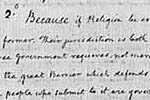 2. Because if Religion be ex
former. Their jurisdiction is both
ee government requires, not mere
the great Barrier which defends
people who submit to it are govern